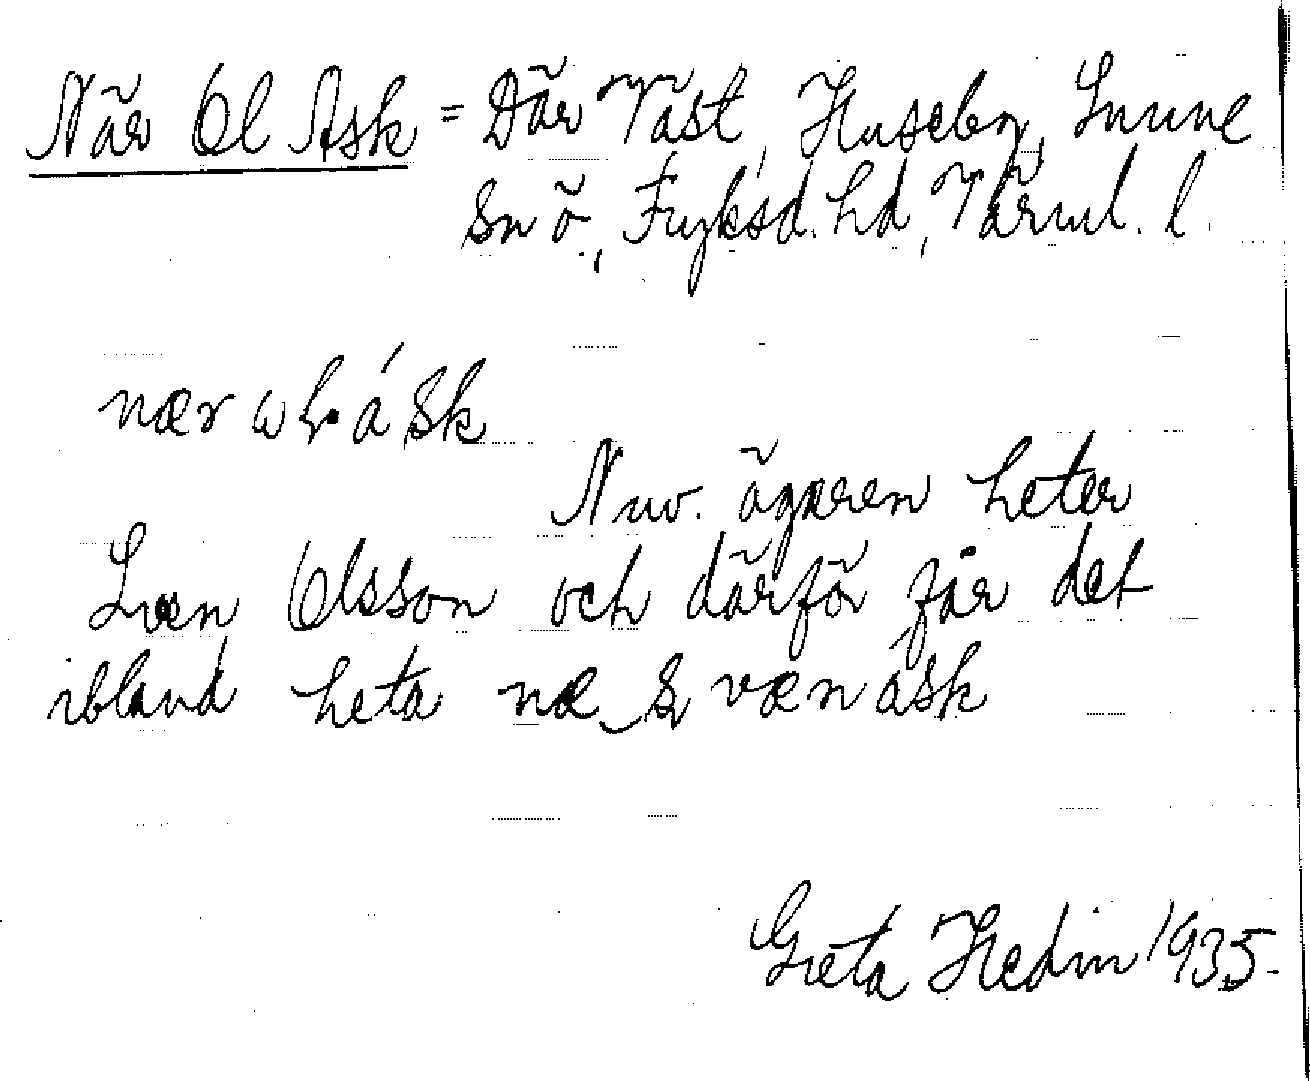 När Ol Ask = Där Väst, Huseby, Sunne
sn ö., Fryksd. hd, Värml. l.
nær ωl á sk
Nuv. ägaren heter
Sven Olsson och därför får det
ibland heta næ svæn ask
Greta Hedin 1935.